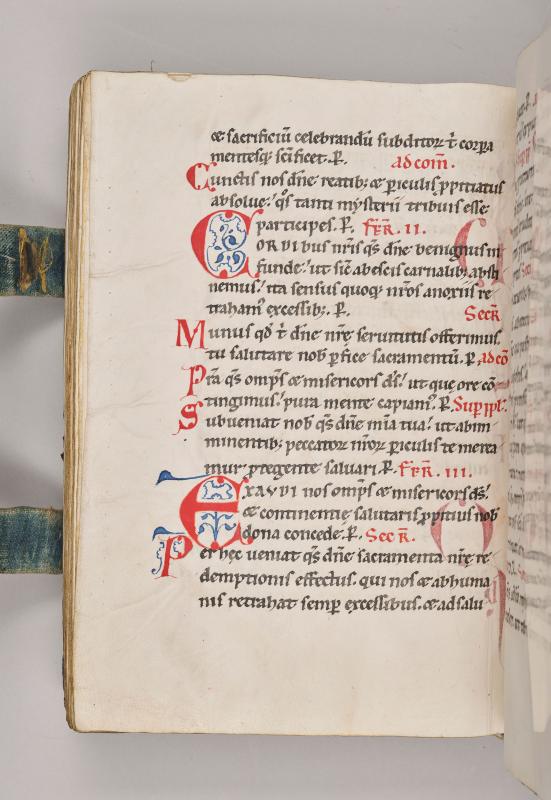 ꝙ sacrificiũ celebrandũ subditoꝝ t̃ corpa
mentesq; sc̃ificet. P̃. ad com̃.
Cunctis nos dñe reatib; ⁊ piculis ppitiatus
absolue: qͦs tanti mysterii tribuis esse
participes. P̃. FER̃. II.
CORDIBUS nr̃is qs̃ dñe benignus in
funde: ut sic̃ abescis carnalib; absti
nemus: ita sensus quoq; nr̃os a noxiis re
traham᾿ excessib;. P̃. Secr̃
Munus qd̃ t̃ dñe nr̃ę seruitutis offerimus.
tu salutare nob̃ pfice sacramentũ. P̃. ad cõ
Pr̃a qs̃ omp̃s ⁊ misericors ds̃: ut quę ore cõ
tingimus: pura mente capiam᾿. P̃. Sup ppl̃.
Subueniat nob̃ qs̃ dñe mĩa tua: ut ab im
minentib; peccatoꝝ nr̃oꝝ piculis te merea
mur ptegente saluari. P̃. FER̃. III.
EXAUDI nos omp̃s ⁊ misericors ds̃:
⁊ continentię salutaris ppitius nob̃
dona concede. P̃. Secr̃.
Per hęc ueniat qs̃ dñe sacramenta nr̃ę re
demptionis effectus. qui nos ⁊ ab huma
nis retrahat semp excessibus. ⁊ ad salu